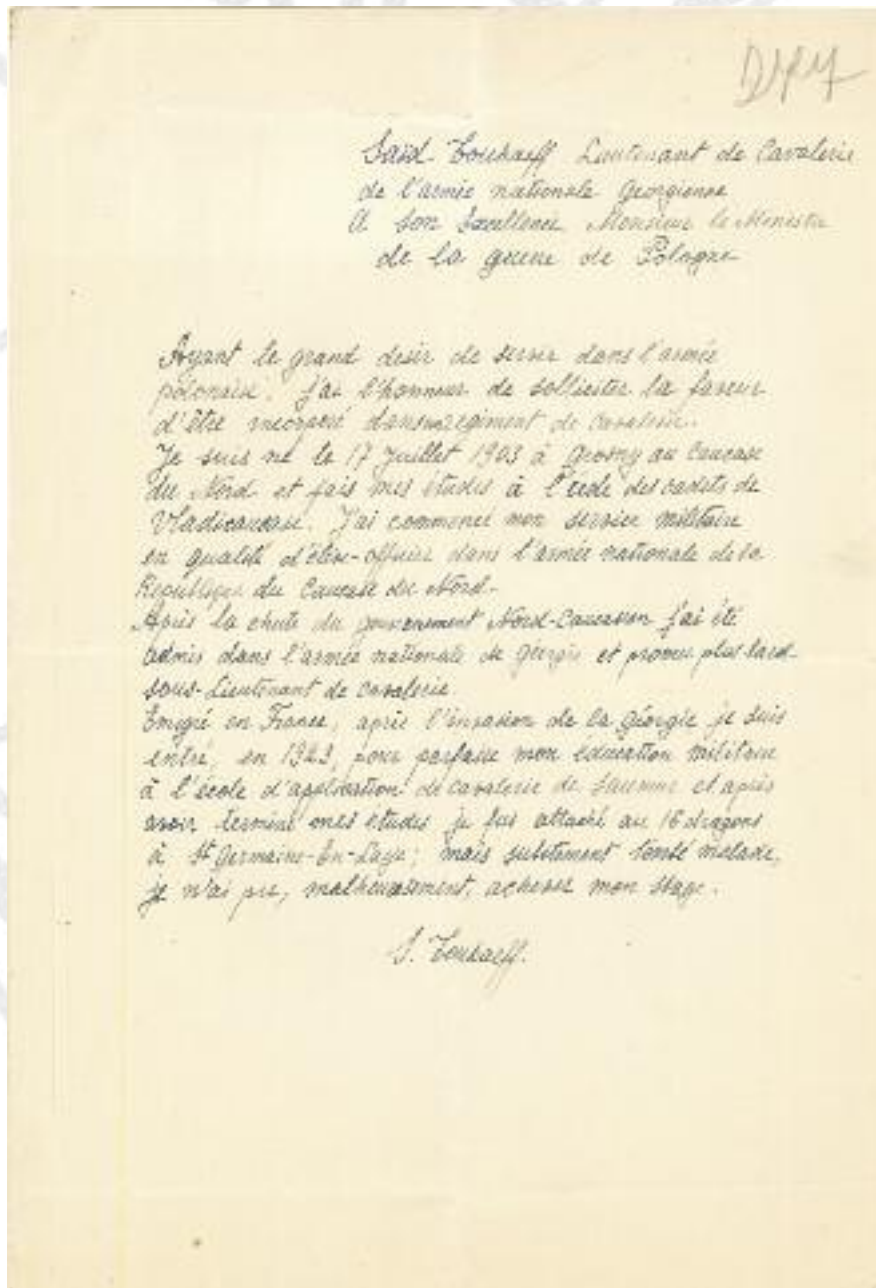 Saïd Toukaeff Lieutenant de Cavalerie
de l'armée nationale Georgienne
A Son Excellence Monsieur le Ministre
de la guerre de Pologne
Ayant le grand desir de servir dans l'armée
polonaise, j'ai l'honneur de solliciter la faveur
d'être incorporé dans un regiment de cavalerie.
Je suis né le 17 Juillet 1903 à Grosny au Caucase
du Nord et fais mes études à l'école des cadets de
Vladicaucase. J'ai commencé mon service militaire
en qualité d'élève-officier dans l'armée nationale de la
Republique du Caucase du Nord.
Après la chute du gouvernement Nord-Caucasien j'ai été
admis dans l'armée nationale de Géorgie et promu plus tard
sous-Lieutenant de cavalerie.
Emigré en France, après l'invasion de la Géorgie je suis
entré, en 1923, pour parfaire mon education militaire
à l'école d'application de cavalerie de Saumur et après
avoir terminé mes études je fus attaché au 16 dragons
à St Germaine-En-Laye; mais subitement tombé malade,
je n'ai pu, malheureusement, achever mon stage.
S. Toukaeff.